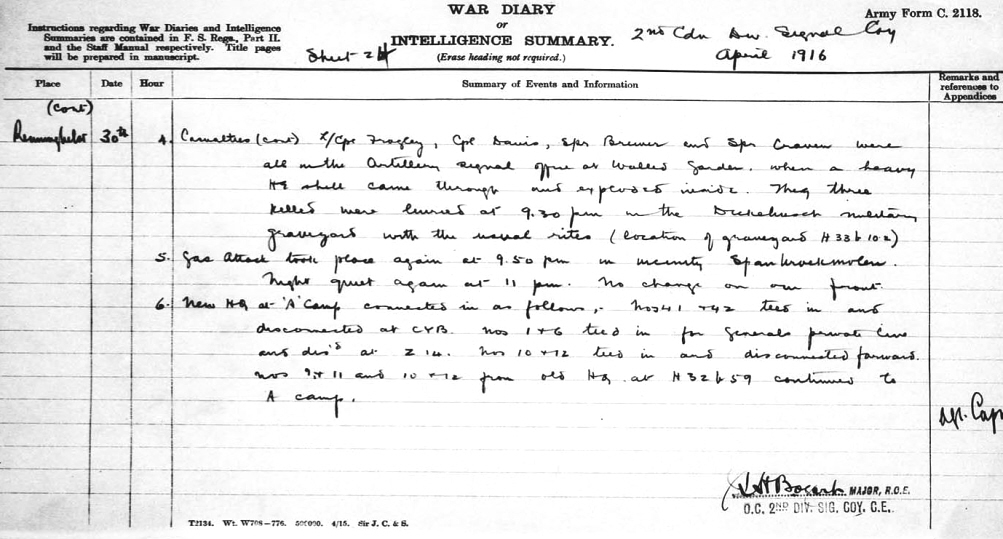 WAR DIARY
or
INTELLIGENCE SUMMARY.
(Erase heading not required.)
Army Form C. 2118.
Instructions regarding War Diaries and Intelligence
Summaries are contained in F. S. Regs., Part II.
and the Staff Manual respectively. Title pages
will be prepared in manuscript.
Sheet 24
2nd Cdn Div. Signal Coy
April 1916
Place Date Hour Summary of Events and Information Remarks and references to Appendices
(Cont)
30th 4. Casualties (cont) Cpl Davis, Sprs Brewer and Spr Craven were
all in the Artillery signal office at Walled Garden, when a heavy
HE shell came through and exploded inside. They three
killed were buried at 9.30 pm in the Dickebusch military
graveyard with the usual rites (location of graveyard H 33 b 10 2)
5. Gas Attack took place again at 9.50 pm in vicinity Spanbroekmolen.
Night quiet again at 11 pm. No change on our front.
6. New HQ at 'A' Camp connected in as follows,- Nos 41 + 42 tied in and
disconnected at CYB. Nos 1 + 6 tied in for Generals private line
and dis'd at Z 14. Nos 10 + 12 tied in and disconnected forward.
Nos 9 + 11 and 10 + 12 from old HQ at H 32 b 59 continued to
A camp.
MAJOR, R.O.E.
O.C. 2ND DIV. SIG. COY. C.E.
T2134. Wt. W708-776. 500000. 4/15. Sir J. C. & S.